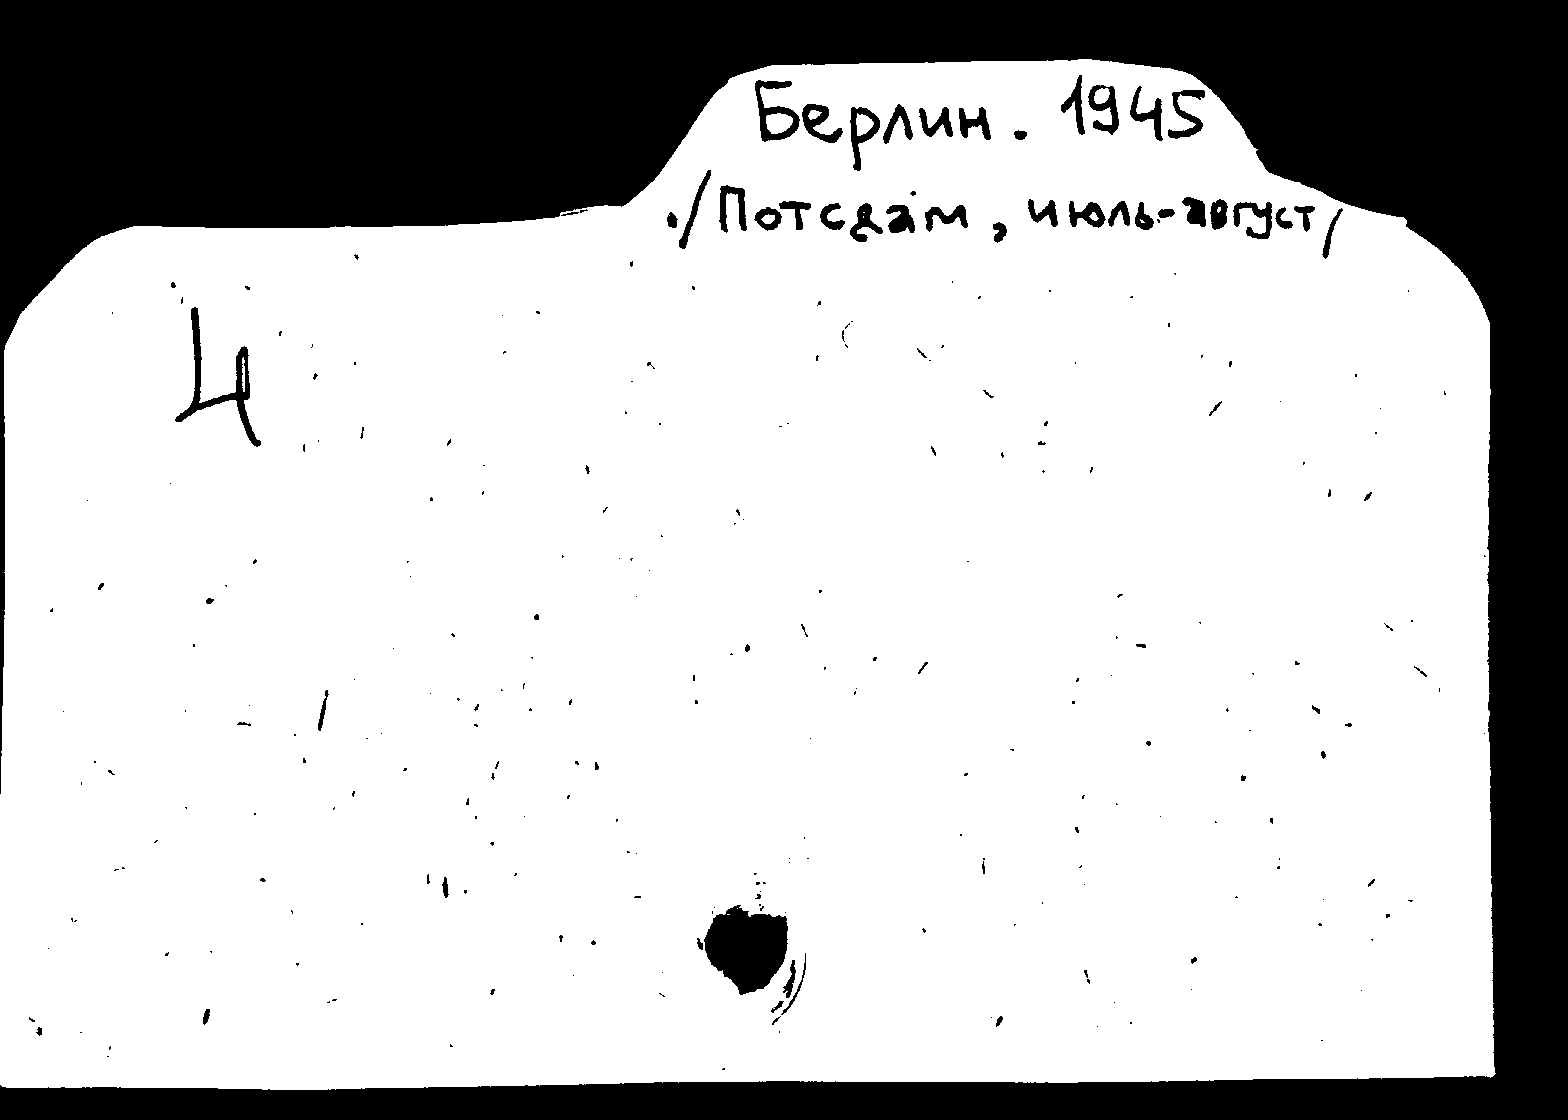 Берлин. 1945
./Потсдам, июль-август/
4